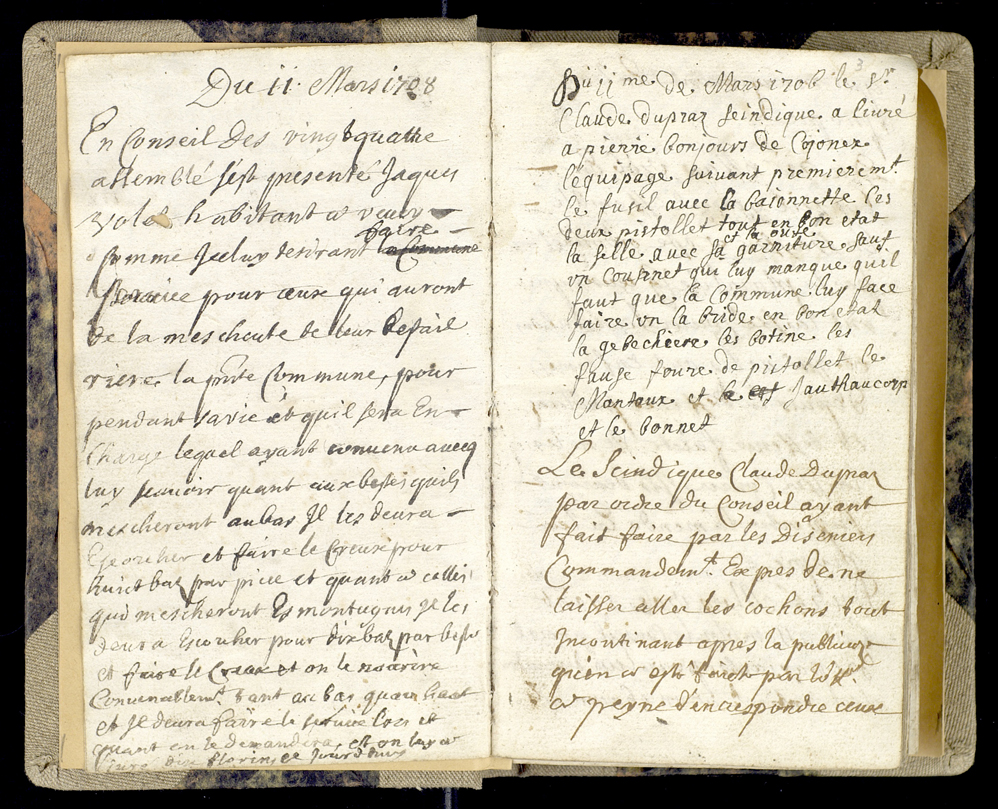 Du 11. Mars 1708
En Conseil Des vingt quattre
assemblé s'est presenté Jaques
Volet habitant a vevey
comme Iceluy desirant faire la Commune
service pour ceux qui auront
de la meschute de leur Bestail
riere la pnte Commune, pour
pendant sa vie et quil sera En
Charge lequel ayant convenu avecq
luy scavoir quant aux bestes quils
mescheront au bas Il les devra
Escorcher et faire le Creux pour
huict baz par piece et quant a celles
qui mescheront Es montagnes Il les
devra Escorcher pour dix baz par beste
et faire le Creux et on le
Convenablemt. tant au bas quen haut
et Il devra faire le service lors et
quant on le demandera, et on luy a
livré dix florins ce jourdhuy
3
Du 11me. de Mars 1708 le Sr.
Claude dupraz seindique a livré
a pierre bonjours de Cojonex
lequipage suivant premieremt.
le fusil avec la baionnette les
deux pistollet tout en bon etat
la selle avec sa et la ouse garniture sauf
vn Cousinet qui luy manque quil
faut que la Commune luy face
faire vn la bride en bon etat
la gebeciere les botine les
fause foure de pistollet le
Manteaux et le Jauthaucorp
et le bonnet
Le Scindique Claude Dupraz
par ordre du Conseil ayant
fait faire par les Diseniers
Commandemt. Expres de ne
laisser aller les cochons tout
Incontinant apres la publicaon
qui en a esté faicte par
a peyne d'en respondre ceux